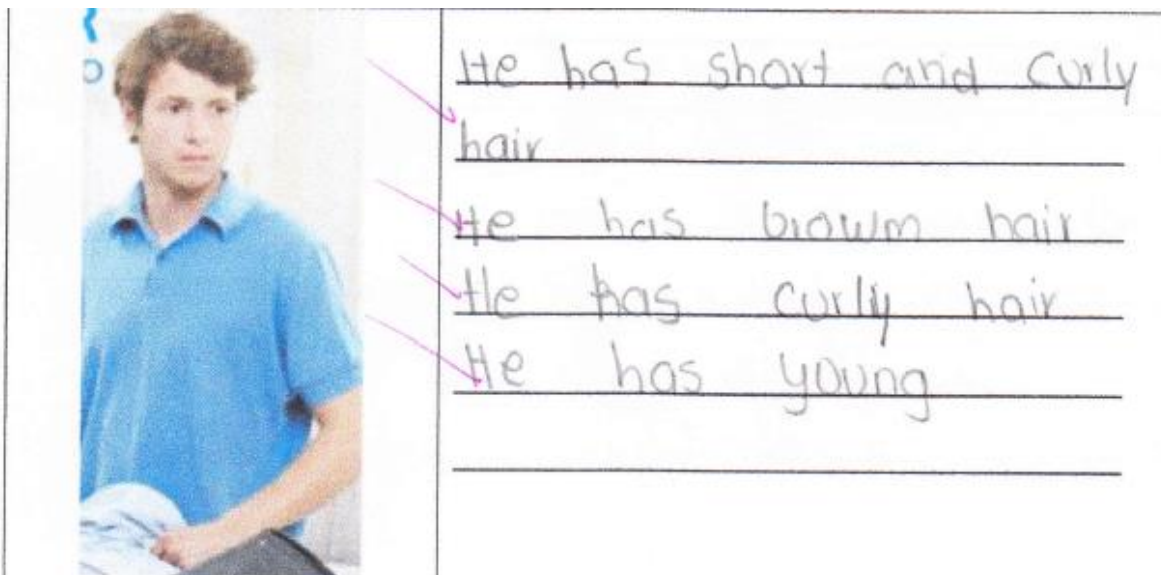 He has short and curly
hair
He has browm hair
He has curly hair
He has young